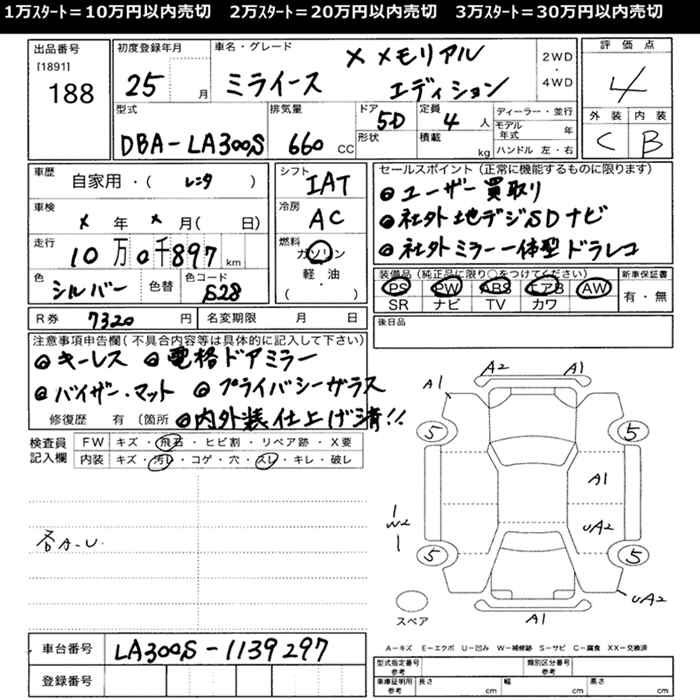 1万スタート＝10万円以内売切　2万スタート＝20万円以内売切　3万スタート＝30万円以内売切
出品番号
[1891]
188
初度登録年月
25 月
車名・グレード
メモリアル
ミライース エディション
2WD
・
4WD
評価点
4
外装 内装
C B
型式
DBA-LA300S
排気量
660 CC
ドア
5D
形状
定員
4 人
積載
kg
ディーラー・並行
モデル年式 年
ハンドル 左・右
車歴
自家用・( レンタ )
シフト
IAT
車検
× 年 × 月( 日)
冷房
AC
走行
10万0千897km
燃料
ガソリン
軽・油
( )
色
シルバー
色替
色コード
S28
R券
7320 円
名変期限 月 日
セールスポイント (正常に機能するものに限ります)
◎ユーザー買取り
◎社外地デジSDナビ
◎社外ミラー一体型ドラレコ
装備品 (純正品に限り○をつけてください)
PS PW ABS エアB AW
SR ナビ TV カワ
新車保証書
有・無
後日品
注意事項申告欄(不具合内容等は具体的に記入して下さい)
◎キーレス ◎電格ドアミラー
◎バイザー・マット ◎プライバシーガラス
修復歴 有 (箇所 ◎内外装仕上げ済!!
検査員
記入欄
FW キズ・飛石・ヒビ割・リペア跡・X要
内装 キズ・汚レ・コゲ・穴・スレ・キレ・破レ
各A-U.
A2 A1
A1
5 5
A1
W2
UA2
5 5
UA2
A1
スペア
A－キズ E－エクボ U－凹み W－補修跡 S－サビ C－腐食 XX－交換済
車台番号 LA300S-1139297
登録番号
型式指定番号
参考
類別区分番号
参考
車庫証明用
参考
長さ cm 幅 cm 高さ cm